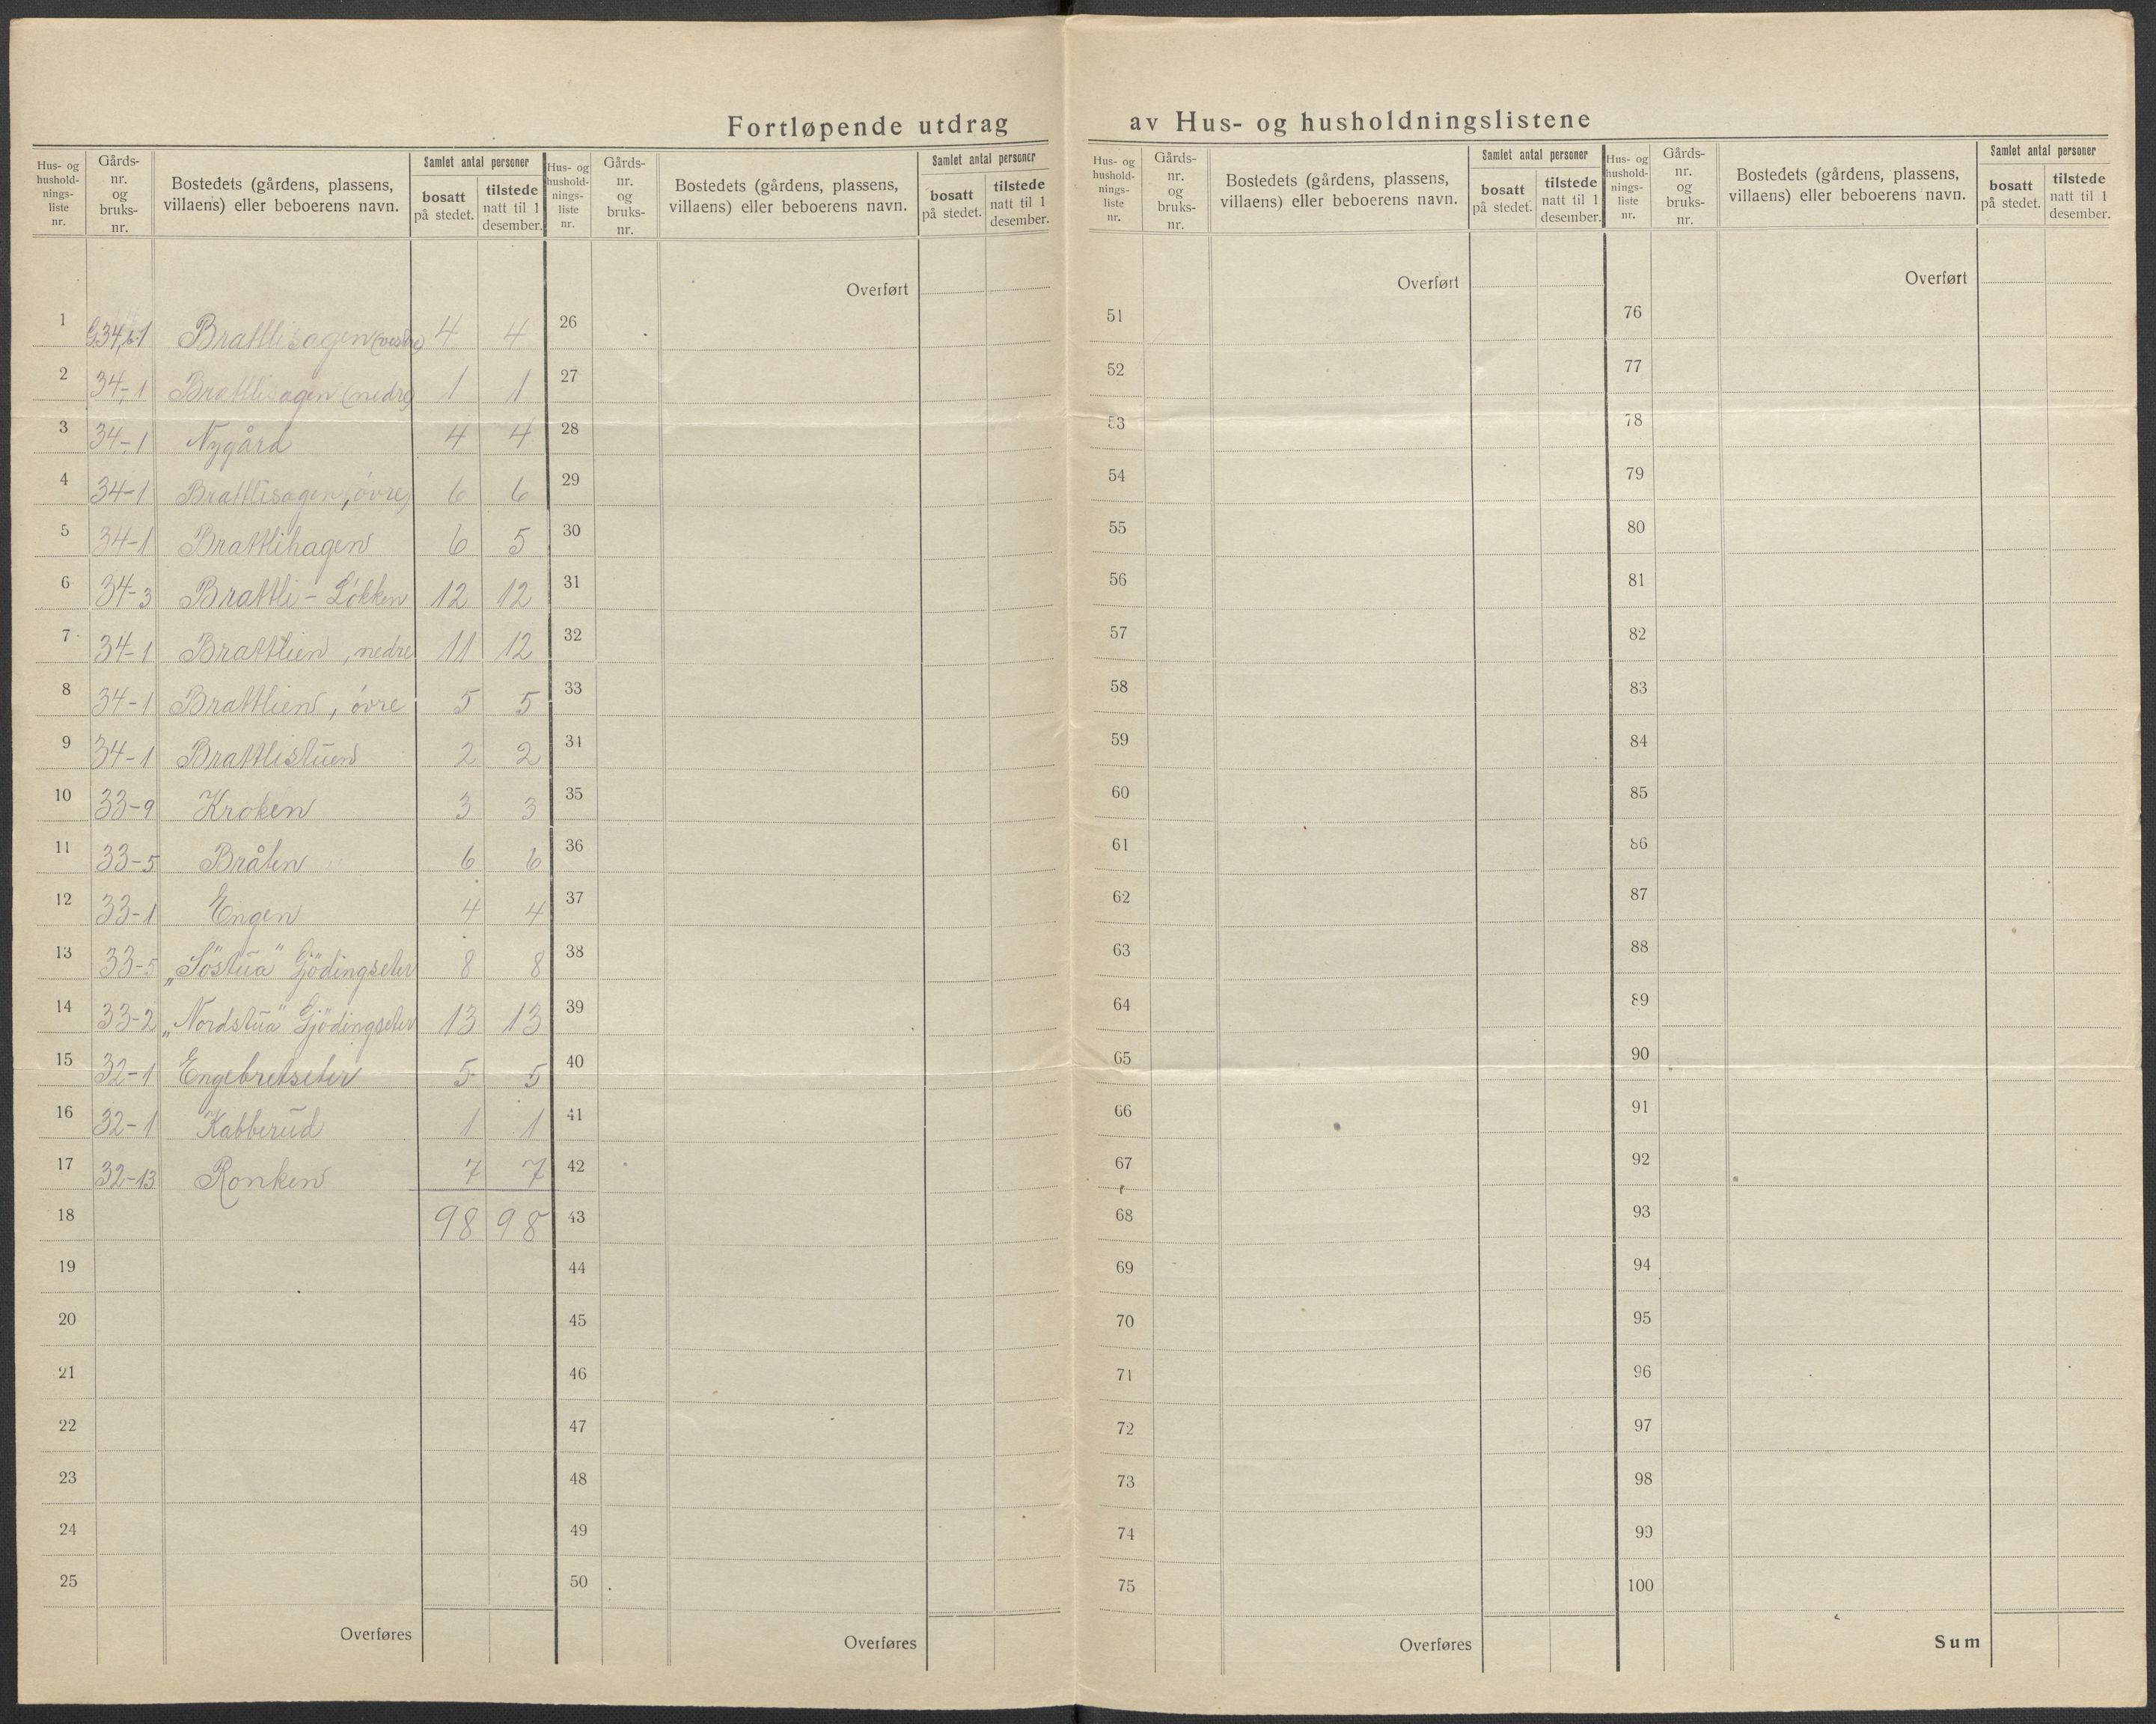 Fortløpende utdrag av Hus- og husholdningslistene
Hus- og husholdnings-liste nr. Gårds-nr. og bruks-nr. Bostedets (gårdens, plassens, villaens) eller beboerens navn. Samlet antal personer bosatt på stedet. tilstede natt til 1 desember.
1 G34,b1 Brattlisagen (vestre) 4 4
2 34-1 Brattlisagen (nedre) 1 1
3 34-1 Nygård 4 4
4 34-1 Brattlisagen, övre) 6 6
5 34-1 Brattlihagen 6 5
6 34-3 Brattli-Lökken 12 12
7 34-1 Brattlien, nedre 11 12
8 34-1 Brattlien, övre 5 5
9 34-1 Brattlistuen 2 2
10 33-9 Kroken 3 3
11 33-5 Bråten 6 6
12 33-1 Engen 4 4
13 33-5 „Söstua" Gjödingseter 8 8
14 33-2 „Nordstua" Gjödingseter 13 13
15 32-1 Engebretseter 5 5
16 32-1 Kabberud 1 1
17 32-13 Ronken 7 7
18 98 98
19
20
21
22
23
24
25
Overføres
Hus- og husholdnings-liste nr. Gårds-nr. og bruks-nr. Bostedets (gårdens, plassens, villaens) eller beboerens navn. Samlet antal personer bosatt på stedet. tilstede natt til 1 desember.
Overført
26
27
28
29
30
31
32
33
34
35
36
37
38
39
40
41
42
43
44
45
46
47
48
49
50
Overføres
Hus- og husholdnings-liste nr. Gårds-nr. og bruks-nr. Bostedets (gårdens, plassens, villaens) eller beboerens navn. Samlet antal personer bosatt på stedet. tilstede natt til 1 desember.
Overført
51
52
53
54
55
56
57
58
59
60
61
62
63
64
65
66
67
68
69
70
71
72
73
74
75
Overføres
Hus- og husholdnings-liste nr. Gårds-nr. og bruks-nr. Bostedets (gårdens, plassens, villaens) eller beboerens navn. Samlet antal personer bosatt på stedet. tilstede natt til 1 desember.
Overført
76
77
78
79
80
81
82
83
84
85
86
87
88
89
90
91
92
93
94
95
96
97
98
99
100
Sum